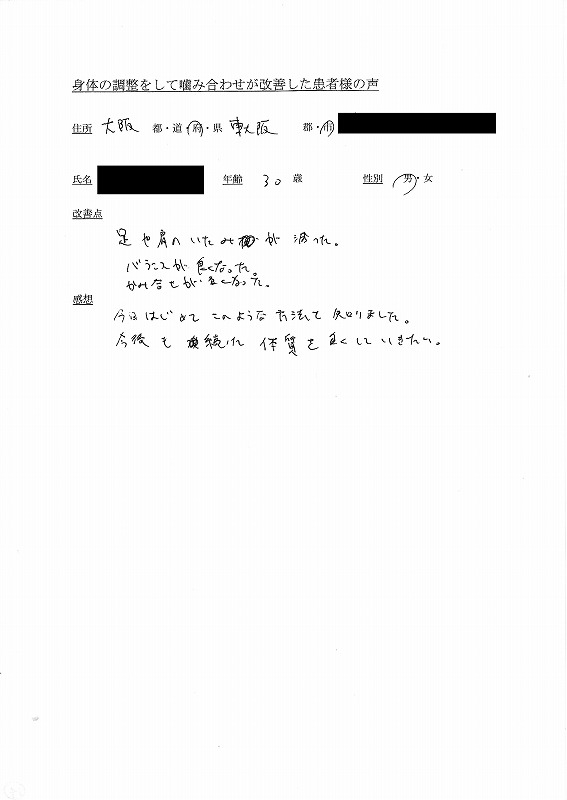 身体の調整をして噛み合わせが改善した患者様の声
住所 大阪 都・道・府・県 東大阪 郡・市
氏名 年齢 30 歳 性別 男・女
改善点
足や肩のいたみが減った。
バランスが良くなった。
かみ合せが良くなった。
感想
今日はじめてこのような方法を知りました。
今後も継続した体質を良くしていきたい。